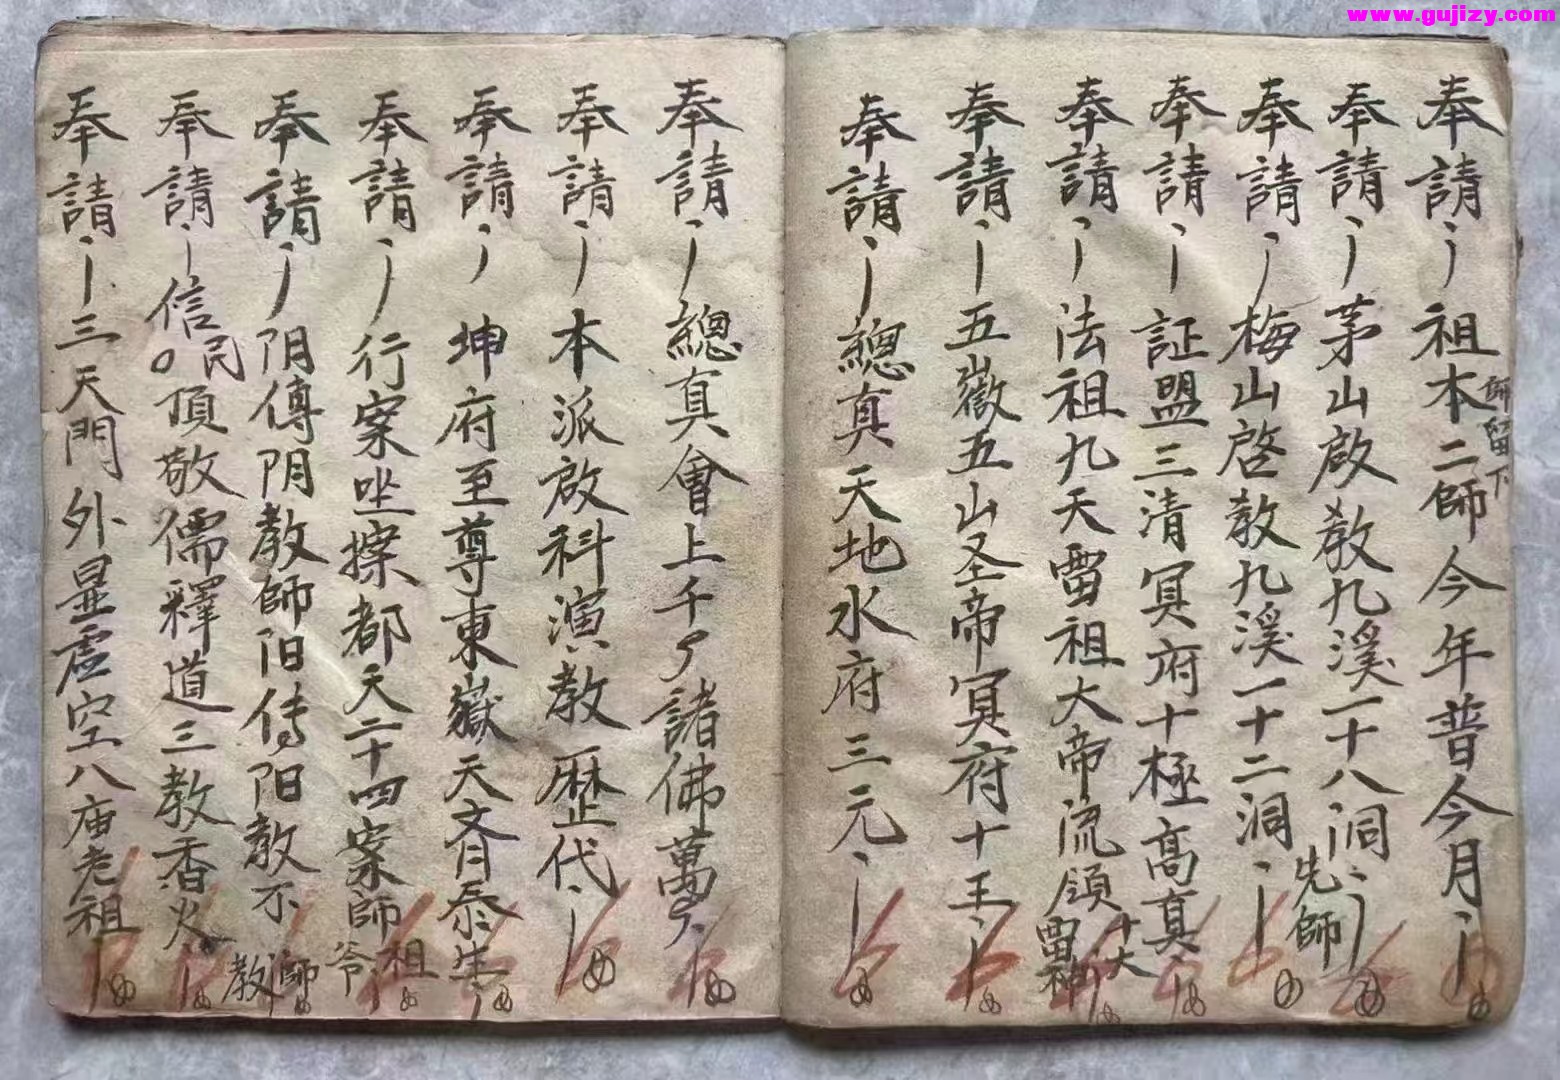 www.gujizy.com
奉請〻祖本二師今年普今月〻
師留下
奉請〻茅山啟教九溪一十八洞〻
先師
奉請〻梅山啓教九溪一十二洞〻
奉請〻証盟三清冥府十極高真〻
奉請〻法祖九天雷祖大帝流領
十大
雷神
奉請〻五嶽五山圣帝冥府十王〻
奉請〻總真天地水府三元〻
奉請〻總真會上千〻諸佛萬〻
奉請〻本派啟科演教歷代〻
奉請〻坤府至尊東嶽天齐泰生〻
奉請〻行案坐案都天二十四案師
祖爷
奉請〻阴傳阴教師阳传阳教不
師教
奉請〻信民頂敬儒釋道三教香火〻
奉請〻三天門外显虚空八庙老祖〻